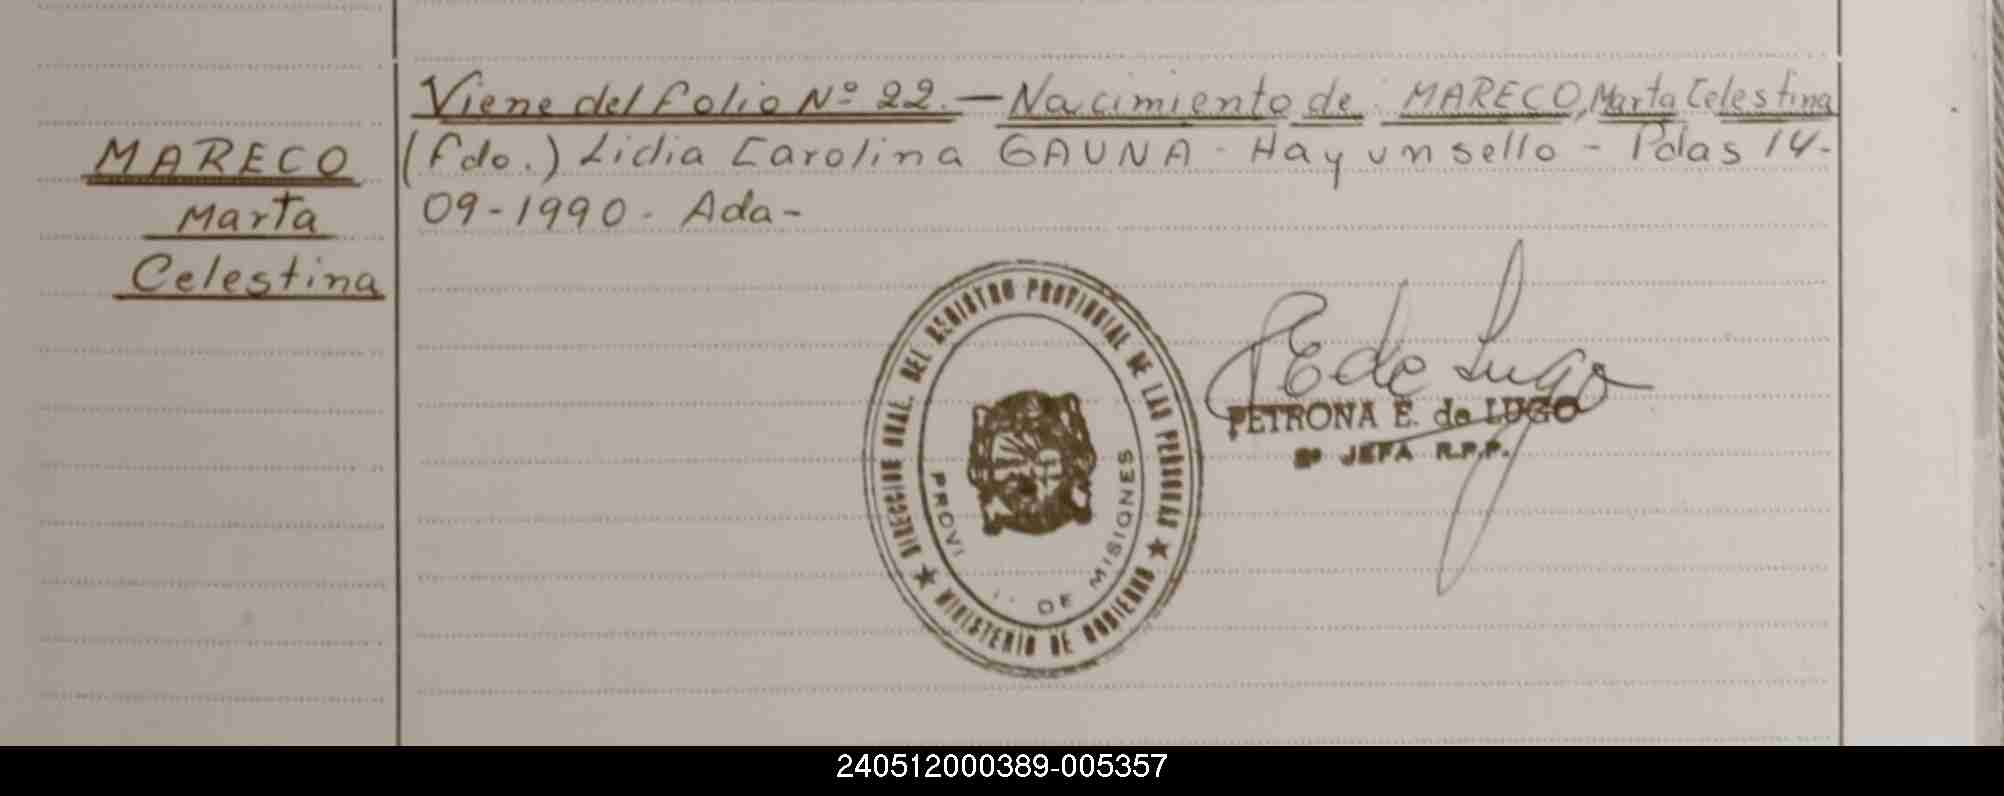 Viene del folio Nº 22. - Nacimiento de: MARECO, Marta Celestina
MARECO
Marta
Celestina
(Fdo.) Lidia Carolina GAUNA - Hay un sello - Pdas 14-
09-1990 - Ada-
DIRECCION GRAL. DEL REGISTRO PROVINCIAL DE LAS PERSONAS
★ MINISTERIO DE GOBIERNO ★
PROVI DE MISIONES
PE de Lugo
PETRONA E. de LUGO
2º JEFA R.P.P.
240512000389-005357